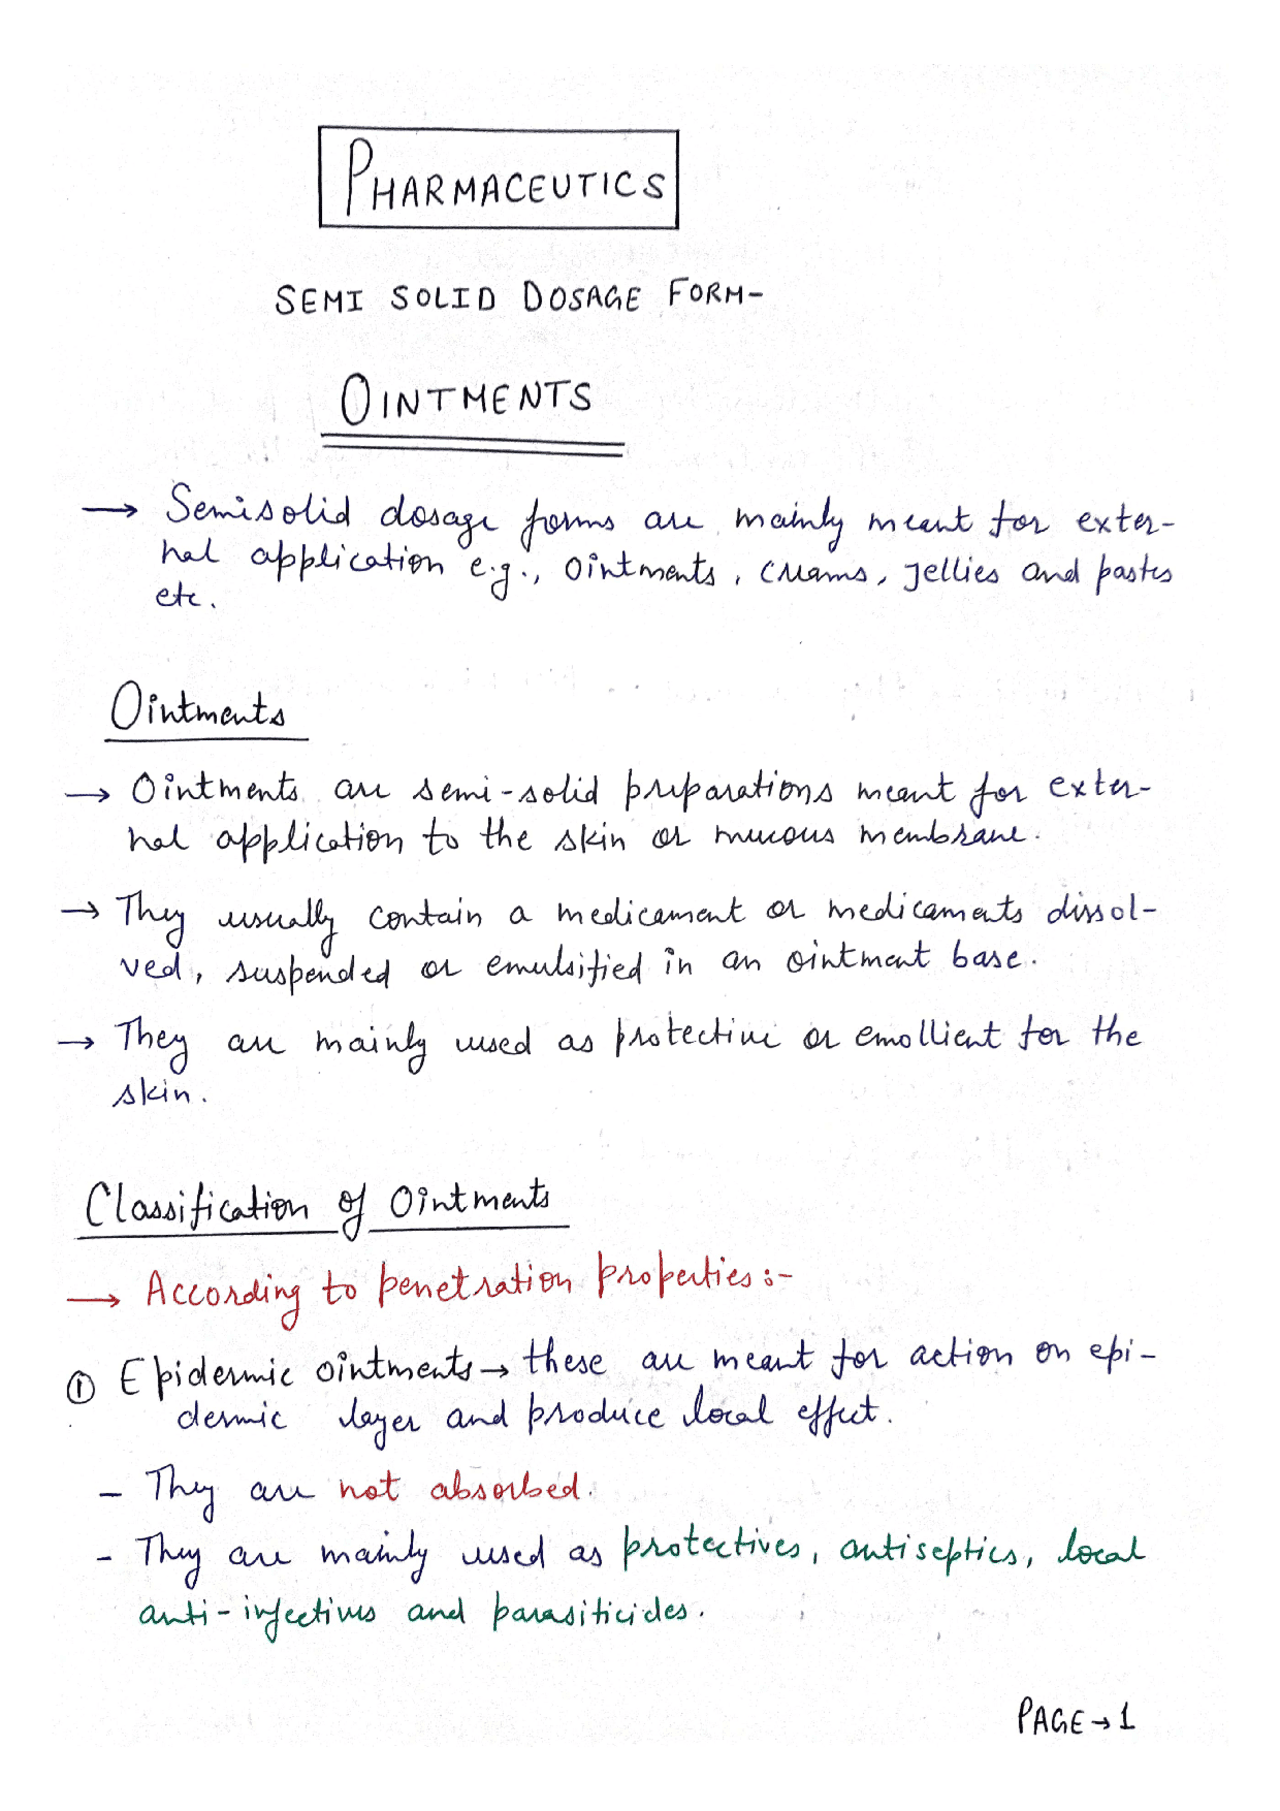 PHARMACEUTICS
SEMI SOLID DOSAGE FORM-
OINTMENTS
→ Semisolid dosage forms are mainly meant for exter-
nal application e.g., ointments, creams, jellies and pastes
etc.
Ointments
→ Ointments are semi-solid preparations meant for exter-
nal application to the skin or mucous membrane.
→ They usually contain a medicament or medicaments dissol-
ved, suspended or emulsified in an ointment base.
→ They are mainly used as protective or emollient for the
skin.
Classification of Ointments
→ According to penetration properties:-
① Epidermic ointments → these are meant for action on epi-
dermic layer and produce local effect.
- They are not absorbed.
- They are mainly used as protectives, antiseptics, local
anti-infectives and parasiticides.
PAGE → 1